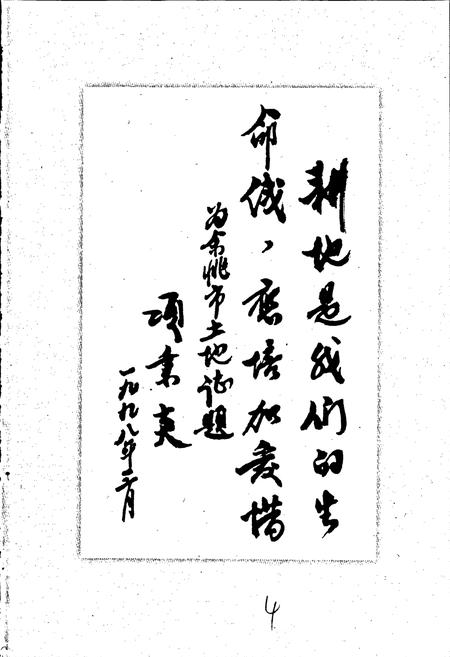 耕地是我们的生
命线，应倍加爱惜
为余姚市土地志题
项秉炎
一九九八年二月
4